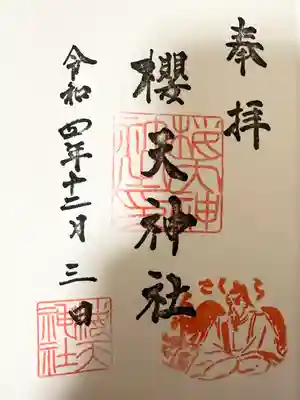 奉拝
櫻天神社
令和四年十二月三日
さくら
櫻天神社